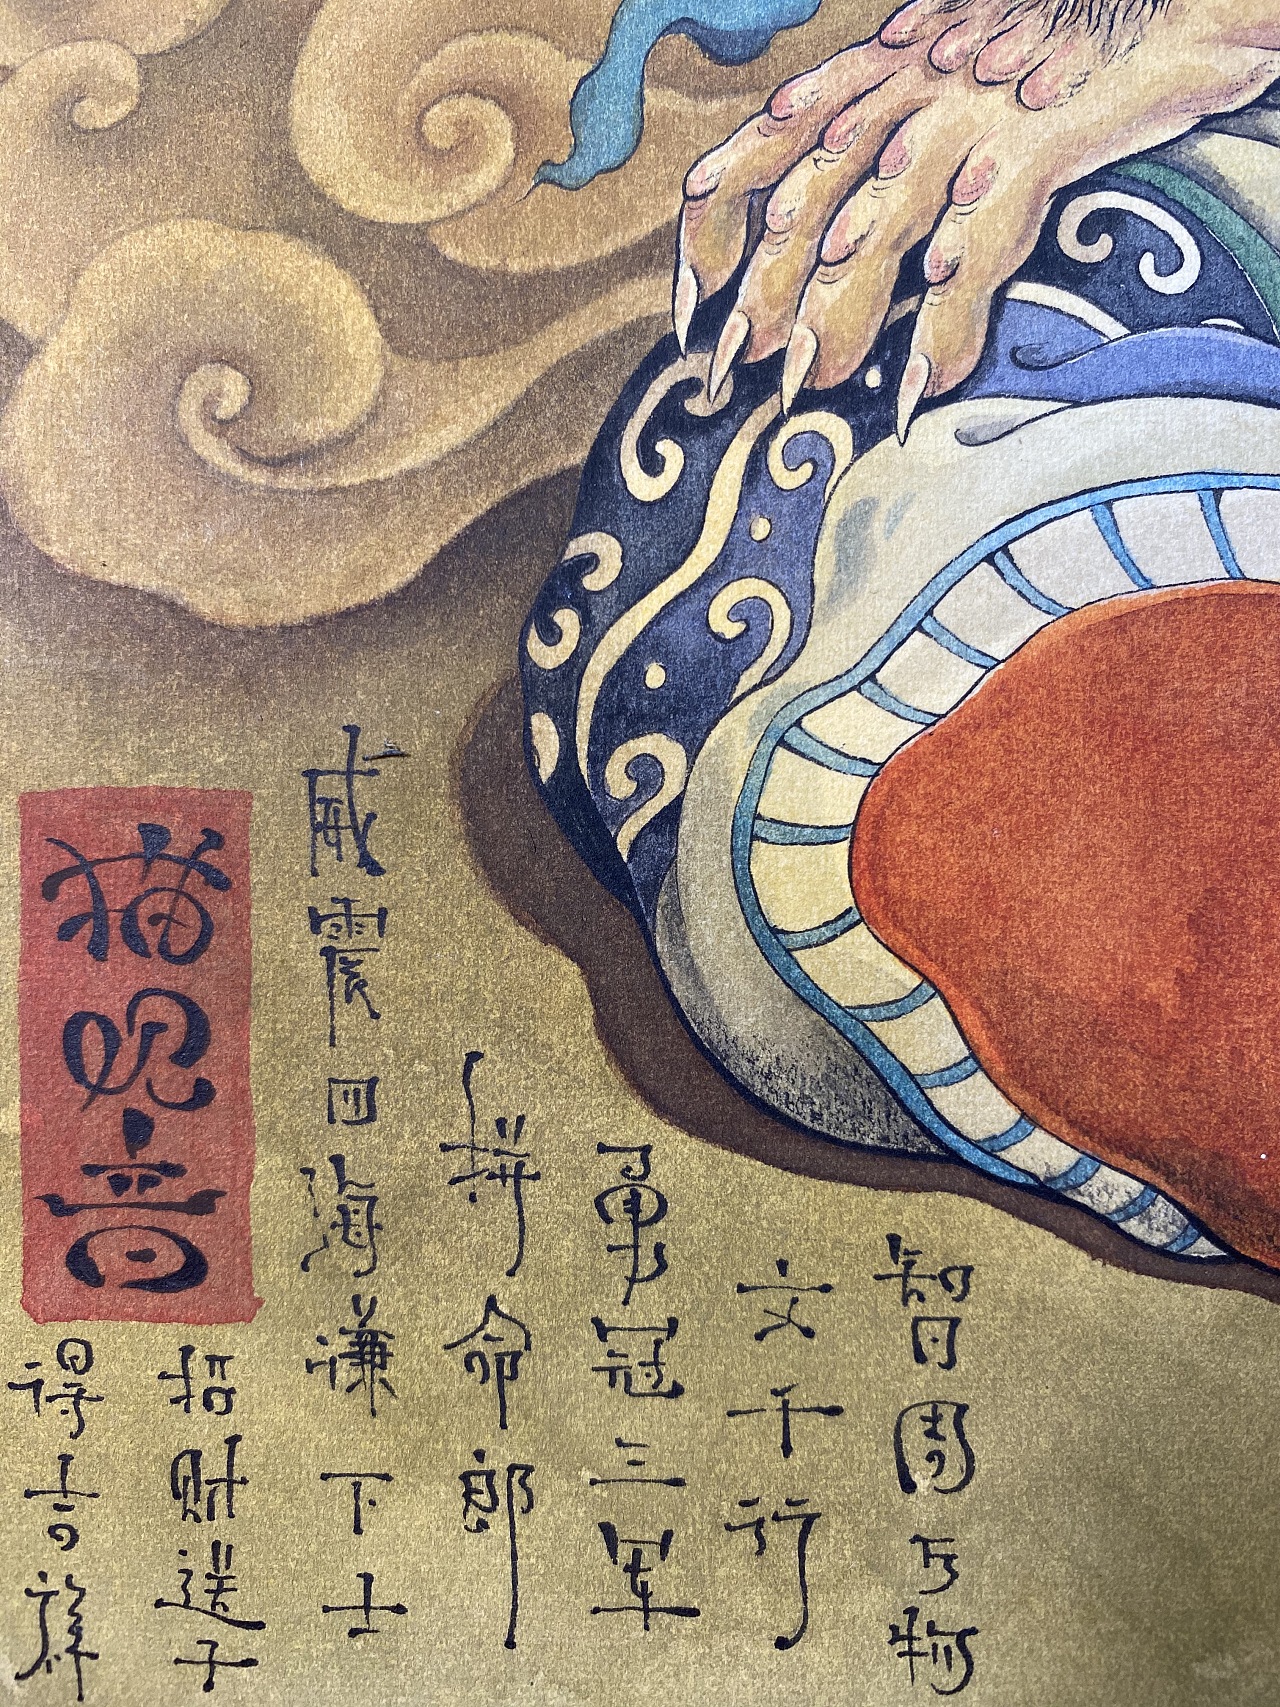 智周万物
文千行
勇冠三军
拼命郎
威震四海谦下士
猫观音
招财送子
得吉祥